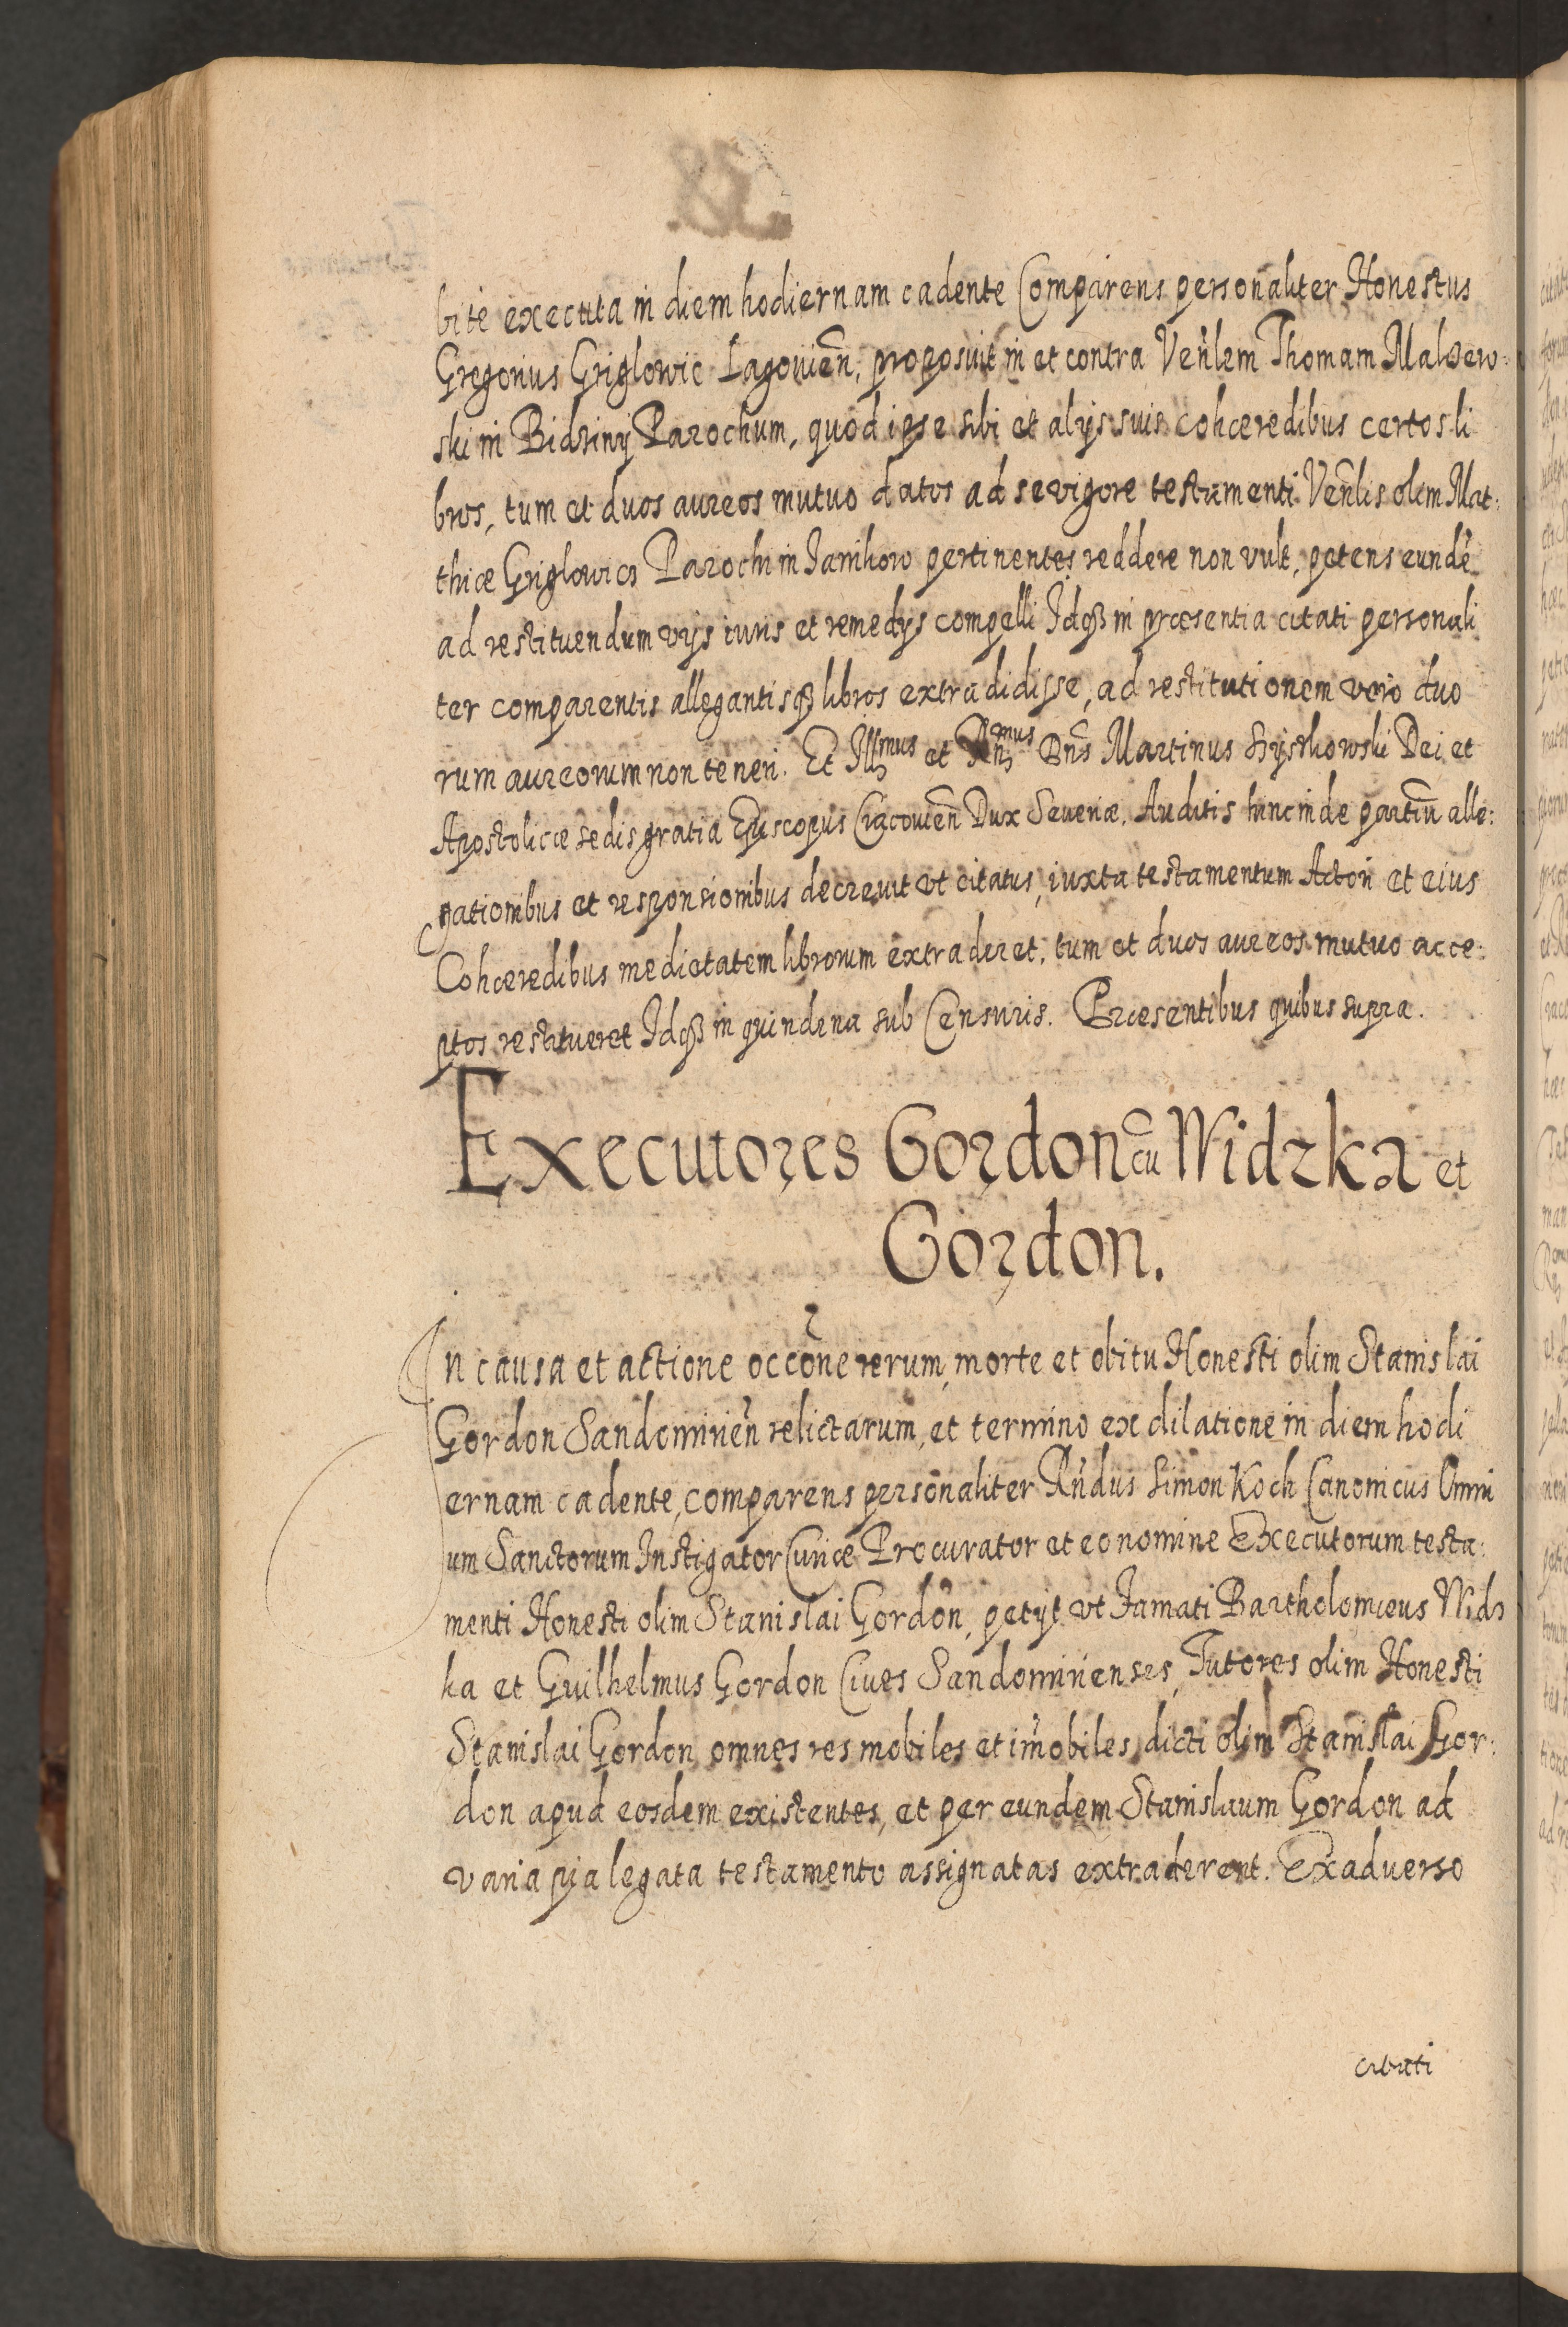 bite executa in diem hodiernam cadente Comparens personaliter Honestus
Gregorius Griglowic Lagouien̄, proposuit in et contra Ven̄lem Thomam Malzew:
ski in Bidziny Parochum, quod ipse sibi et alijs suis cohæredibus certos li
bros, tum et duos aureos mutuo datos ad se vigore testamenti Ven̄lis olim Mat:
thiæ Griglowicz Parochi in Janikow pertinentes reddere non vult, petens eundē
ad restituendum vijs iuris et remedijs compelli Idqȝ in præsentia citati personali
ter comparentis allegantisqȝ libros extradidisse, ad restitutionem vero duo
rum aureorum non teneri. Et Illmus et Rn̄mus Dn̄s Martinus Szyszkowski Dei et
Apostolicæ sedis gratia Episcopus Cracouien̄ Dux Seueriæ. Auditis hinc inde partiū alle:
gationibus et responsionibus decreuit vt citatus, iuxta testamentum Actori et eius
Cohæredibus medietatem librorum extraderet, tum et duos aureos mutuo acce:
ptos restitueret Idqȝ in quindena sub Censuris. Præsentibus quibus supra.
Executores Gordon cū Widzka et
Gordon.
In causa et actione occōne rerum, morte et obitu Honesti olim Stanislai
Gordon Sandomirien̄ relictarum, et termino ex dilatione in diem hodi
ernam cadente, comparens personaliter Rn̄dus Simon Koch Canonicus Omni
um Sanctorum Instigator Curiæ Procurator et eo nomine Executorum testa:
menti Honesti olim Stanislai Gordon, petijt vt Famati Bartholomæus Widz
ka et Guilhelmus Gordon Ciues Sandomirienses, Tutores olim Honesti
Stanislai Gordon, omnes res mobiles et im̄obiles, dicti olim Stanislai Gor:
don apud eosdem existentes, et per eundem Stanislaum Gordon ad
varia pia legata testamento assignatas extraderent. Ex aduerso
citati